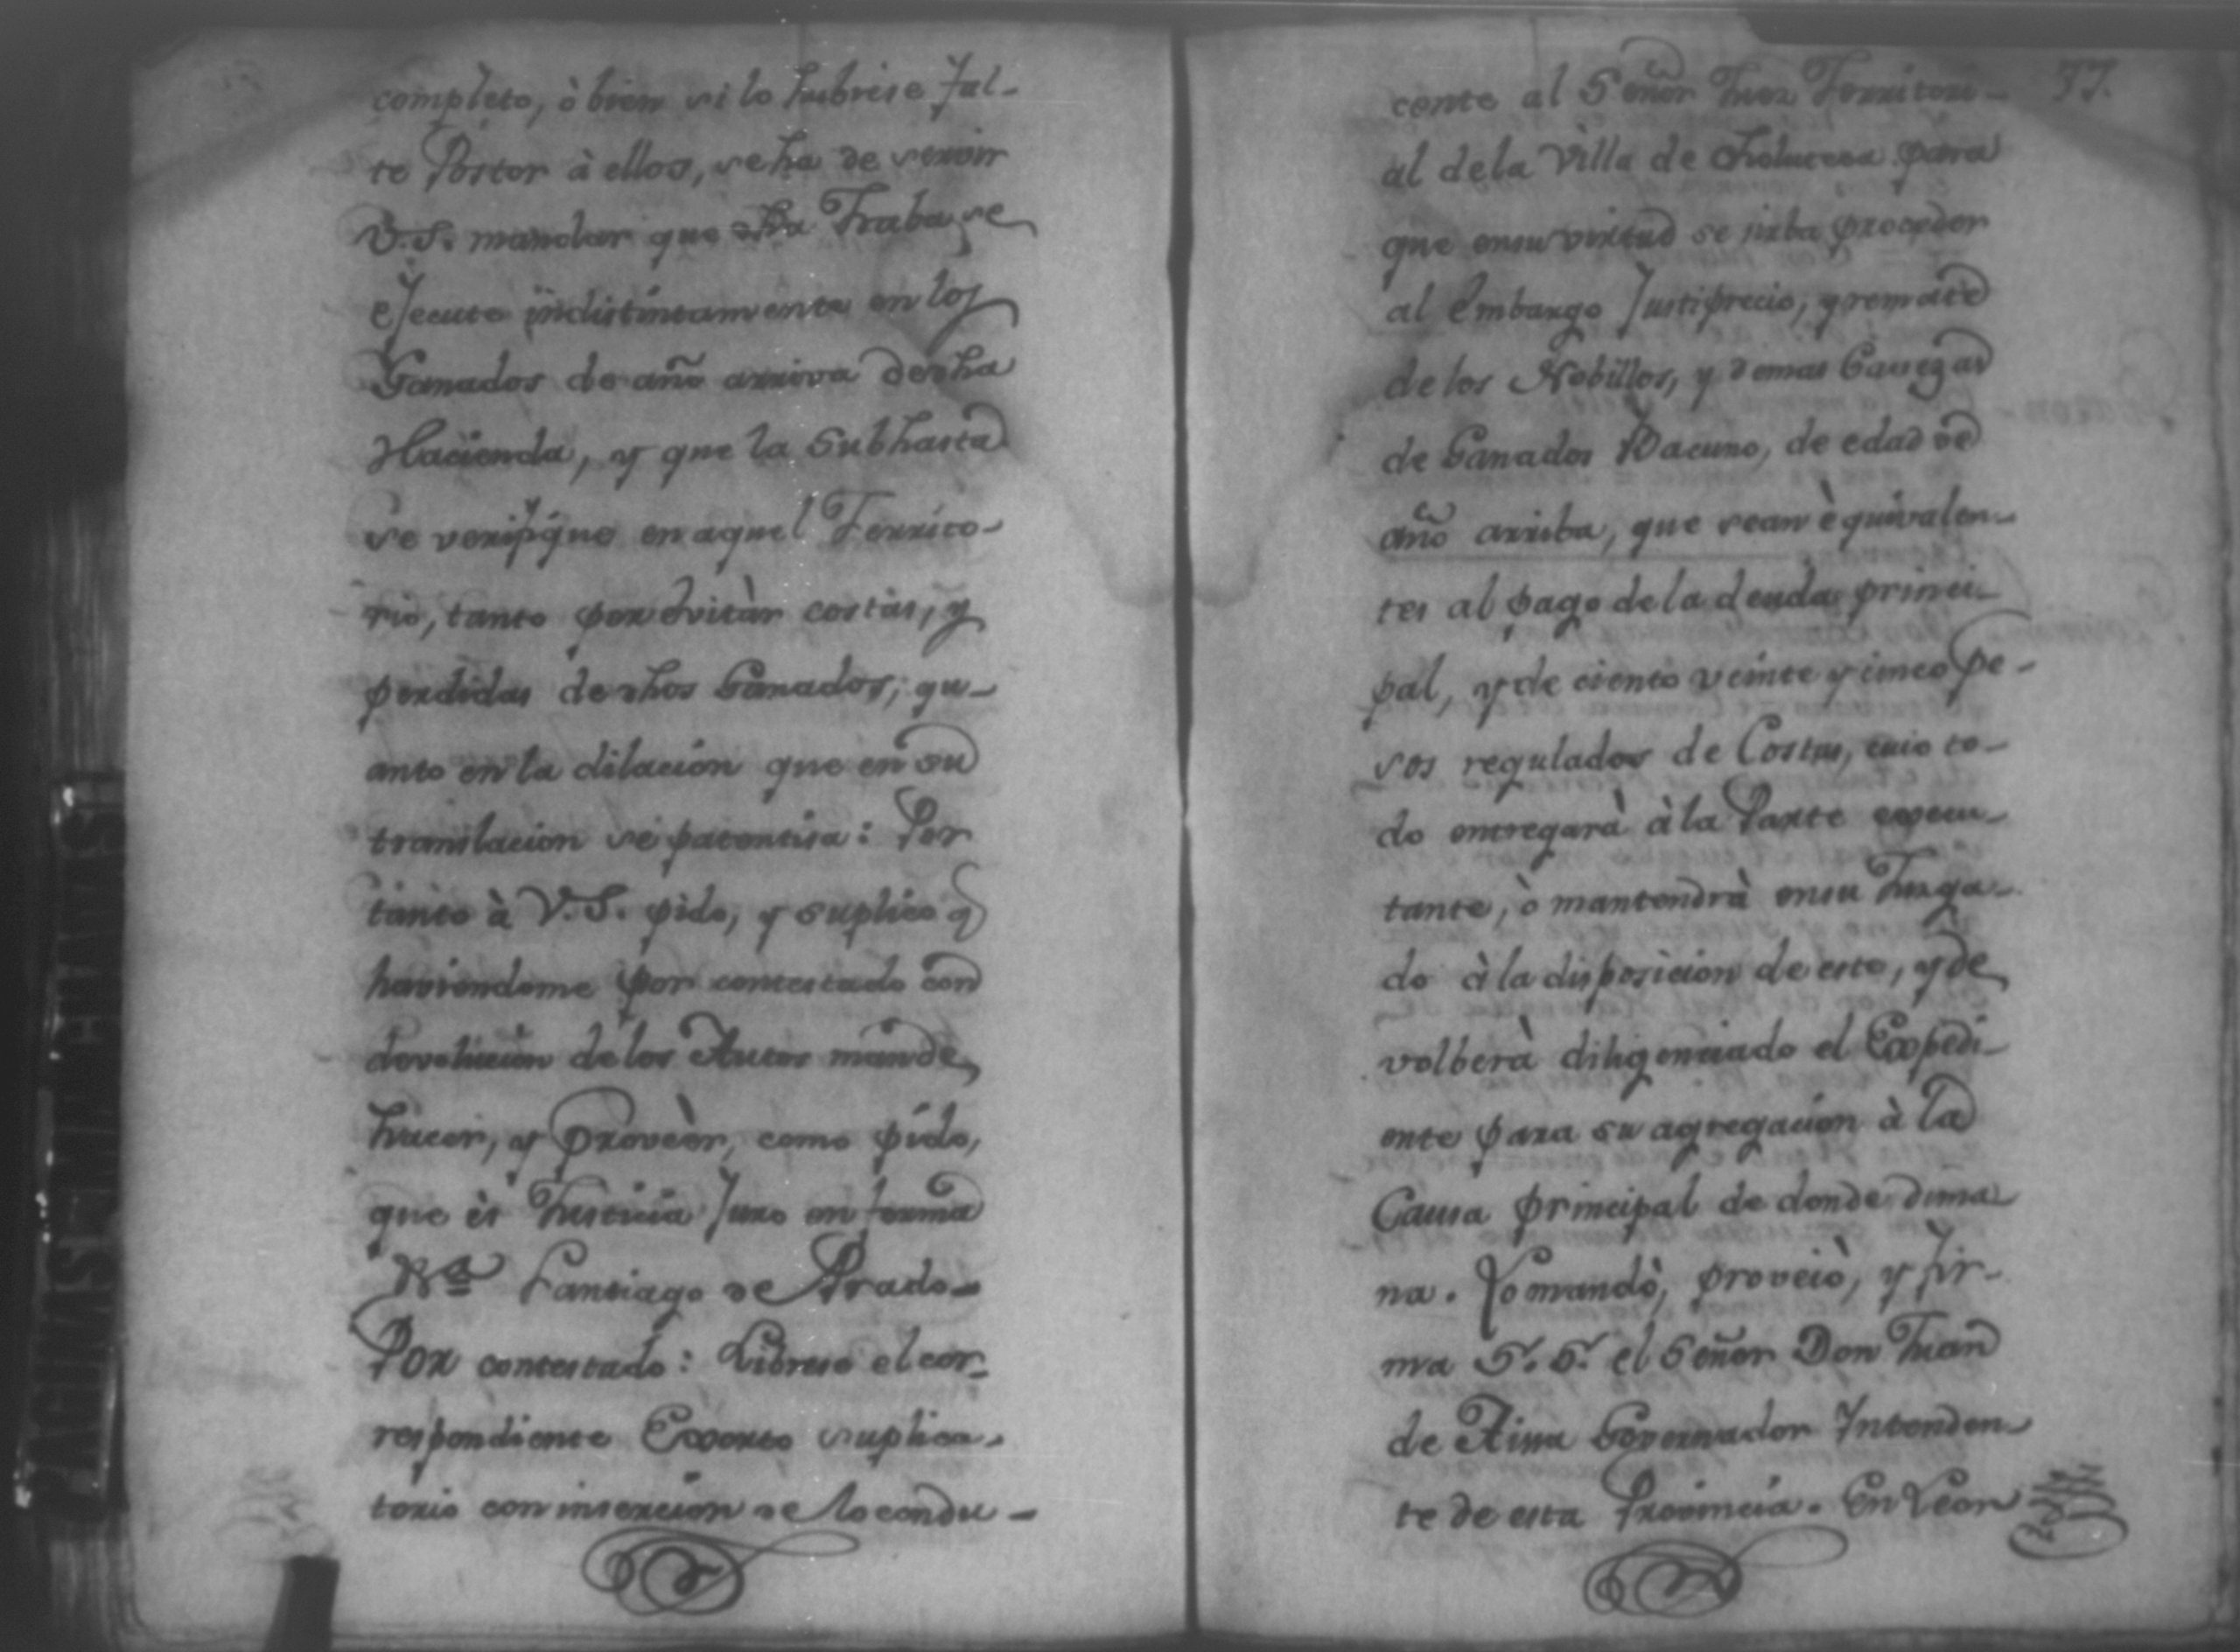 completo, ò bien si lo hubiese fal-
te Postor à ellos, se ha de servir
V.S. mandar que dha Traba, se
ejecute indistintamente en los
Ganados de año arriva de dha
Hacienda, y que la Subhasta
se verifique en aquel Territo-
rio, tanto por evitàr costas, y
perdidas de dhos Ganados, qu-
anto en la dilacion que en su
translacion se patentisa: Por
tanto à V.S. pido, y suplico q
haviendome por contestado con
devolucion de los Autos mande
hacer, y proveèr, como pido,
que ès Justicia Juro en forma
Santiago de Prado-
Por contestado: Librese el cor-
respondiente Exorto suplica-
torio con insercion de lo condu-
37.
cente al Señor Juez Territori-
al dela Villa de Choluteca para
que ensu virtud se sirba proceder
al embargo Justiprecio, y remate
de los Nobillos, y demas Cavezas
de Ganados Bacuno, de edad de
año arriba, que sean èquivalen-
tes al pago dela deuda princi-
pal, y de ciento veinte y cinco pe-
sos regulados de Costas, cuio to-
do entregarà à la Parte execu-
tante, ò mantendrà ensu Juzga-
do à la disposicion de este, y de
volberà diligenciado el Expedi-
ente para su agregacion à la
Causa principal de donde dima
na. Lo mandò, proveiò, y fir-
ma S.S. el Señor Don Juan
de Aissa Governador Intenden-
te de esta Provincia. En Leon